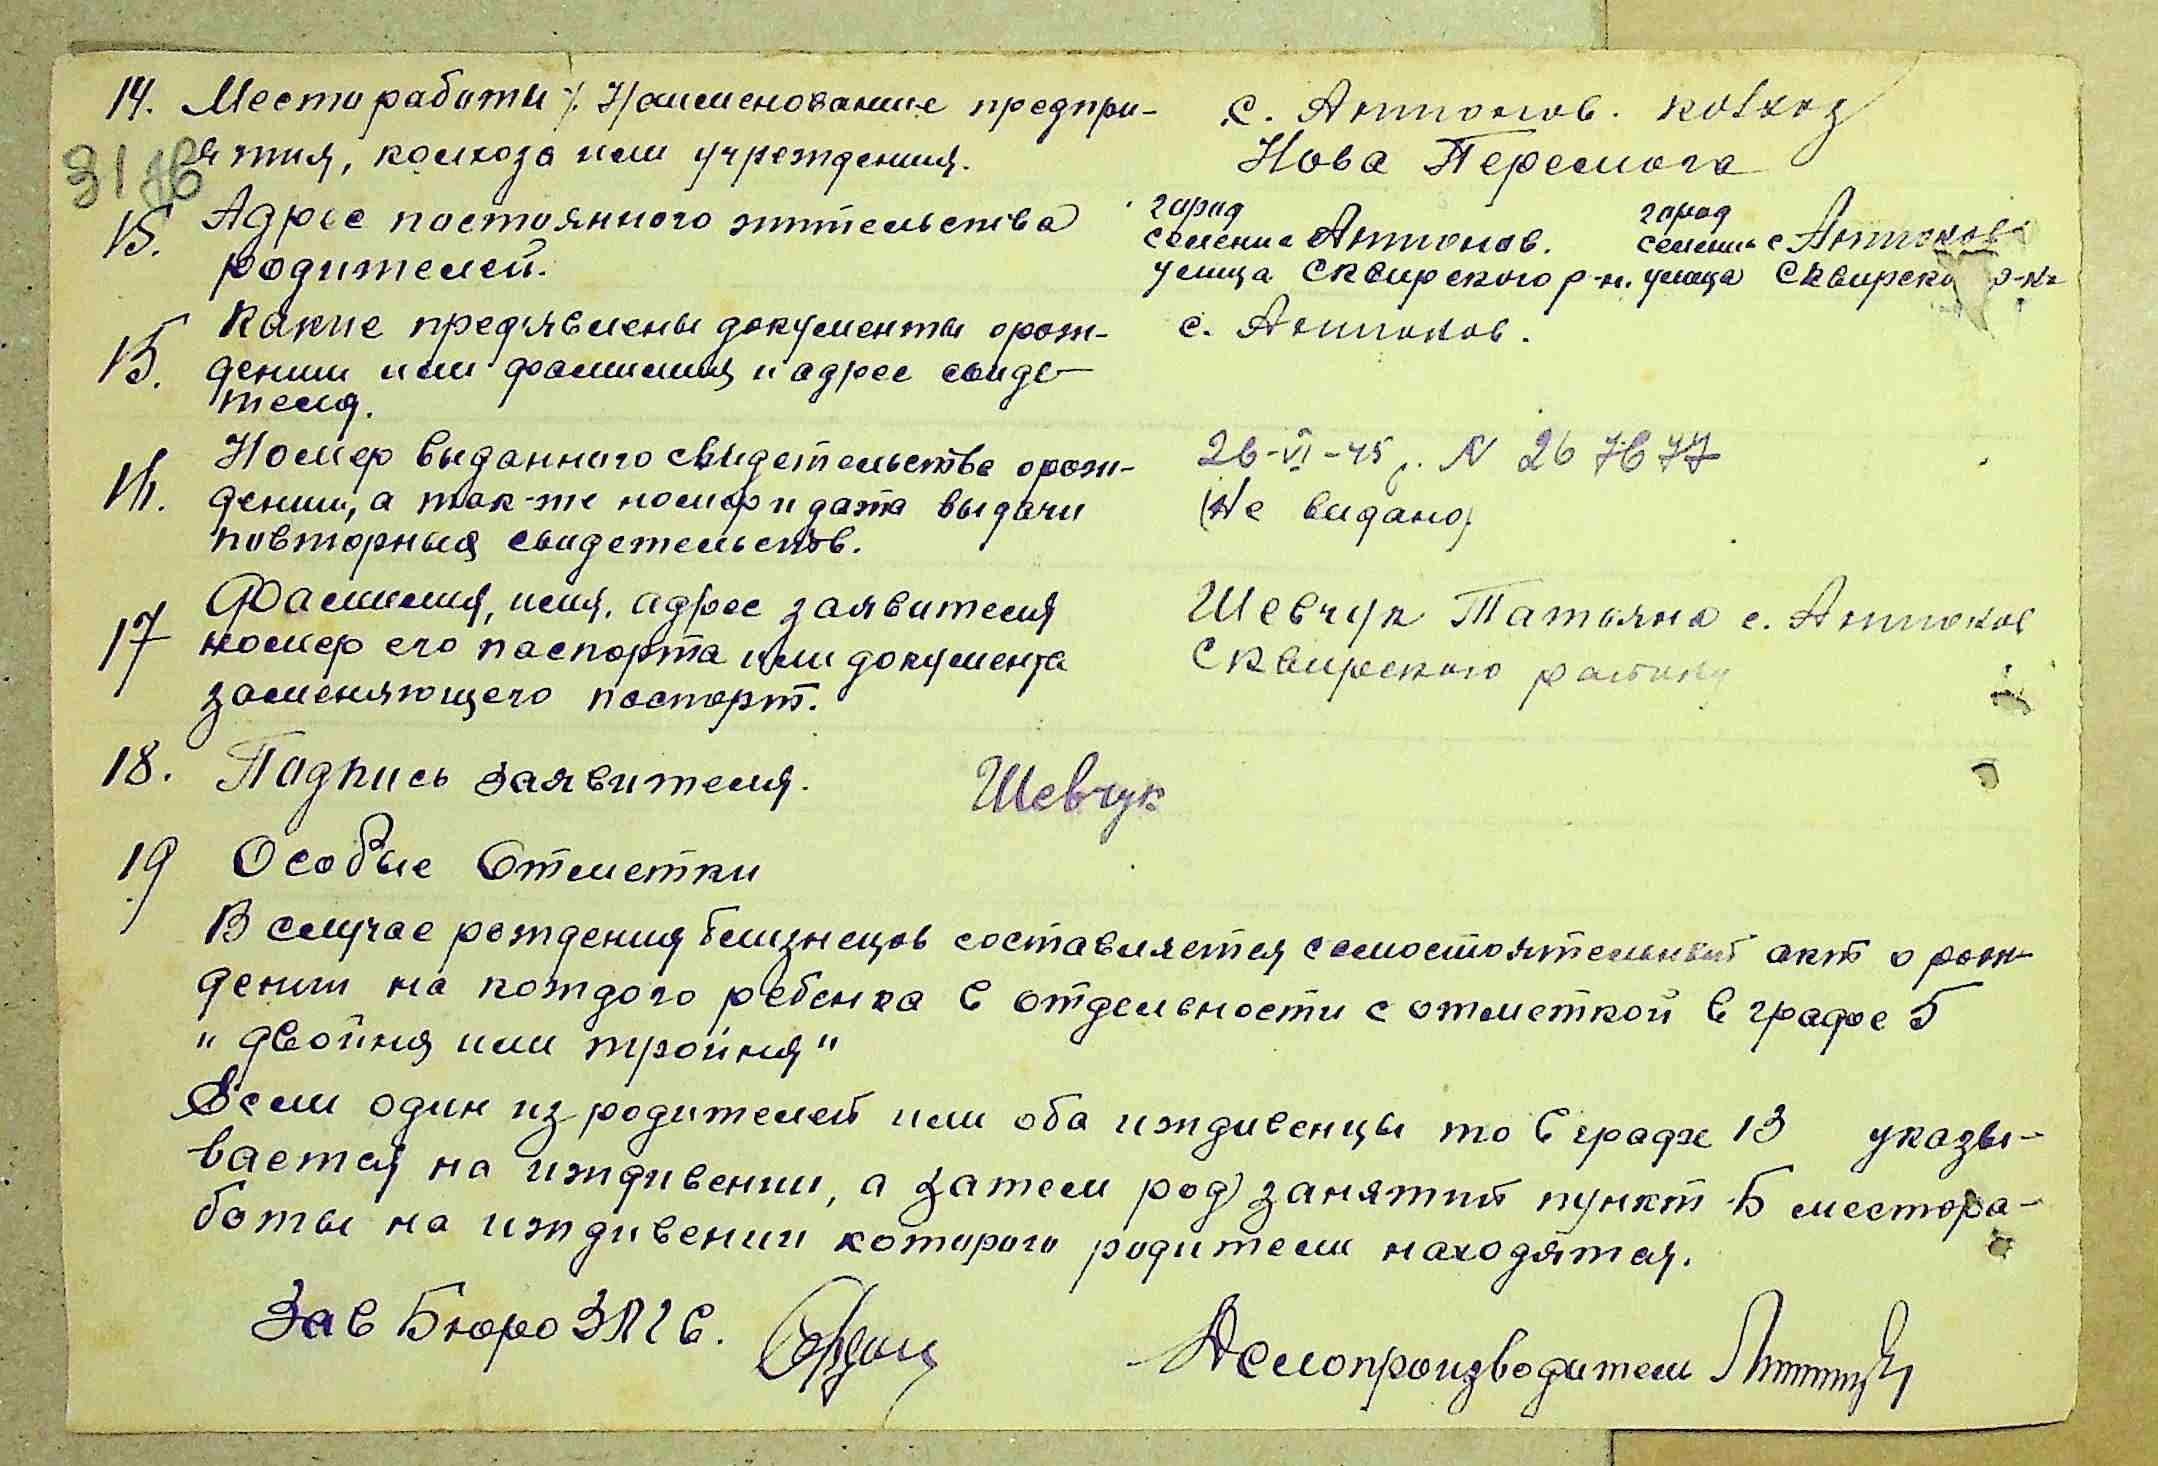 14. Место работы /. Наименование предпри- с. Антонов. колхоз
ятия, колхоза или учреждения. Нова Перемога
15. Адрес постоянного жительства город город
селение Антонов. селение с Антонов
родителей. улица Сквирского р-н. улица Сквирско р-на
15. Какие пред'явлены документы о рож- с. Антонов.
дении или фамилия и адрес свиде-
теля.
Номер выданного свидетельства о рож- 26-VI-45 г. N
дении, а так-же номер и дата выдачи (Не видано)
повторныя свидетельств.
17 Фамилия, имя, адрес заявителя Шевчук Татьяна с. Антонов
номер его паспорта или документа Сквирского району
заменяющего паспорт.
18. Подпись заявителя. Шевчук
19 Особые Отметки
В случае рождения близнецов составляется самостоятельный акт о рож-
дении на кождого ребенка в отдельности с отметкой в графе 5
"двойня или тройня"
Если один из родителей или оба иждивенцы то в графе 13 указы-
вается на иждивении, а затем род занятий пункт Б местора-
боты на иждивении которого родители находятся.
Зав Бюро ЗАГС. Делопроизводитель